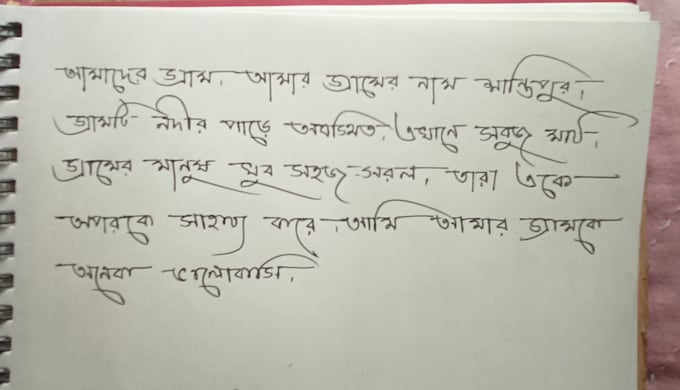 আমাদের গ্রাম। আমার গ্রামের নাম শান্তিপুর।
গ্রামটি নদীর পাড়ে অবস্থিত। এখানে সবুজ মাঠ।
গ্রামের মানুষ খুব সহজ-সরল। তারা একে
অপরকে সাহায্য করে। আমি আমার গ্রামকে
অনেক ভালোবাসি।